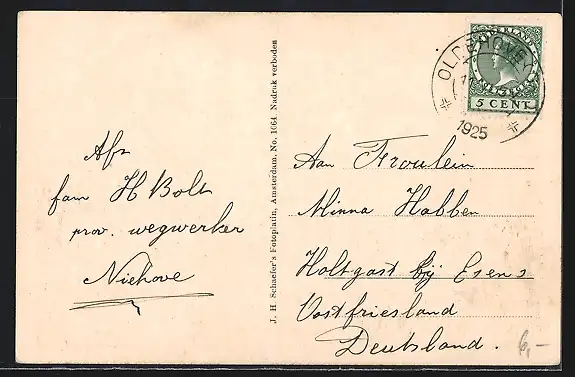 Afz
fam H Bolt
prov. wegwerker
Niehove
J. H. Schaefer's Fotoplatin, Amsterdam. No. 1664 Nadruk verboden
OLDEHOVE
1925
NEDERLAND
5 CENT
Aan Froulein
Minna Habben
Holtgast bij Esens
Oostfriesland
Deutsland.
6,-